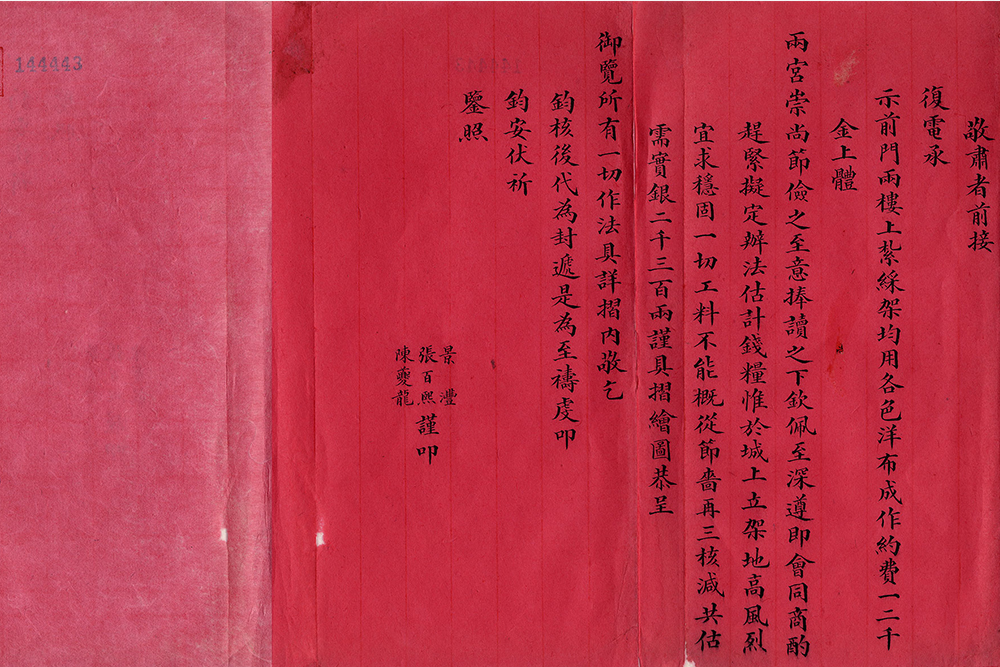 敬肅者前接
復電承
示前門兩樓上紮綵架均用各色洋布成作約費一二千
金上體
兩宮崇尚節儉之至意捧讀之下欽佩至深遵即會同商酌
趕緊擬定辦法估計錢糧惟於城上立架地高風烈
宜求穩固一切工料不能概從節嗇再三核減共估
需實銀二千三百兩謹具摺繪圖恭呈
御覽所有一切作法具詳摺内敬乞
鈞核後代為封遞是為至禱虔叩
鈞安伏祈
鑒照
景灃
張百熙 謹叩
陳夔龍
144443